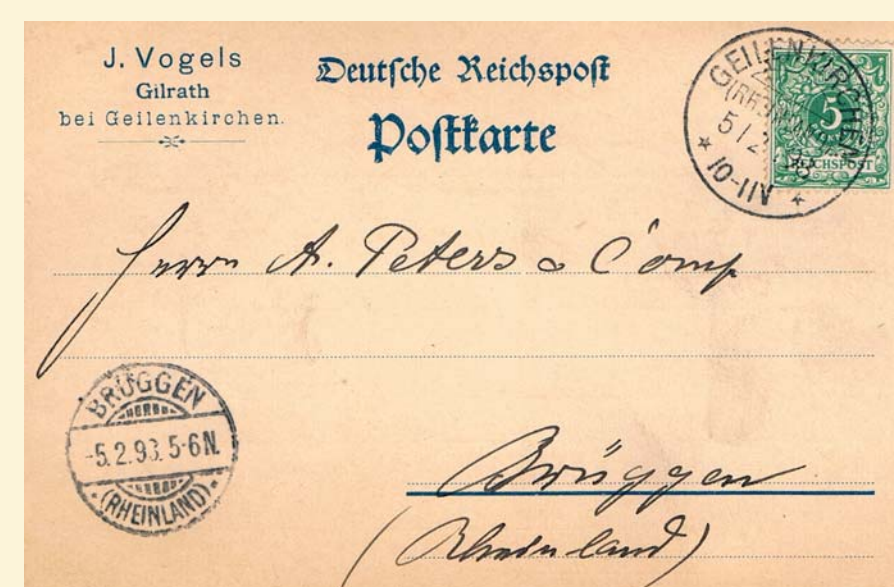 J. Vogels
Gilrath
bei Geilenkirchen.
Deutsche Reichspost
Postkarte
GEILENKIRCHEN
5/2
10-11V
5
REICHSPOST
Herrn A. Peters & Comp
BRÜGGEN
-5.2.93.5-6N.
(RHEINLAND)
Brüggen
(Rheinland)